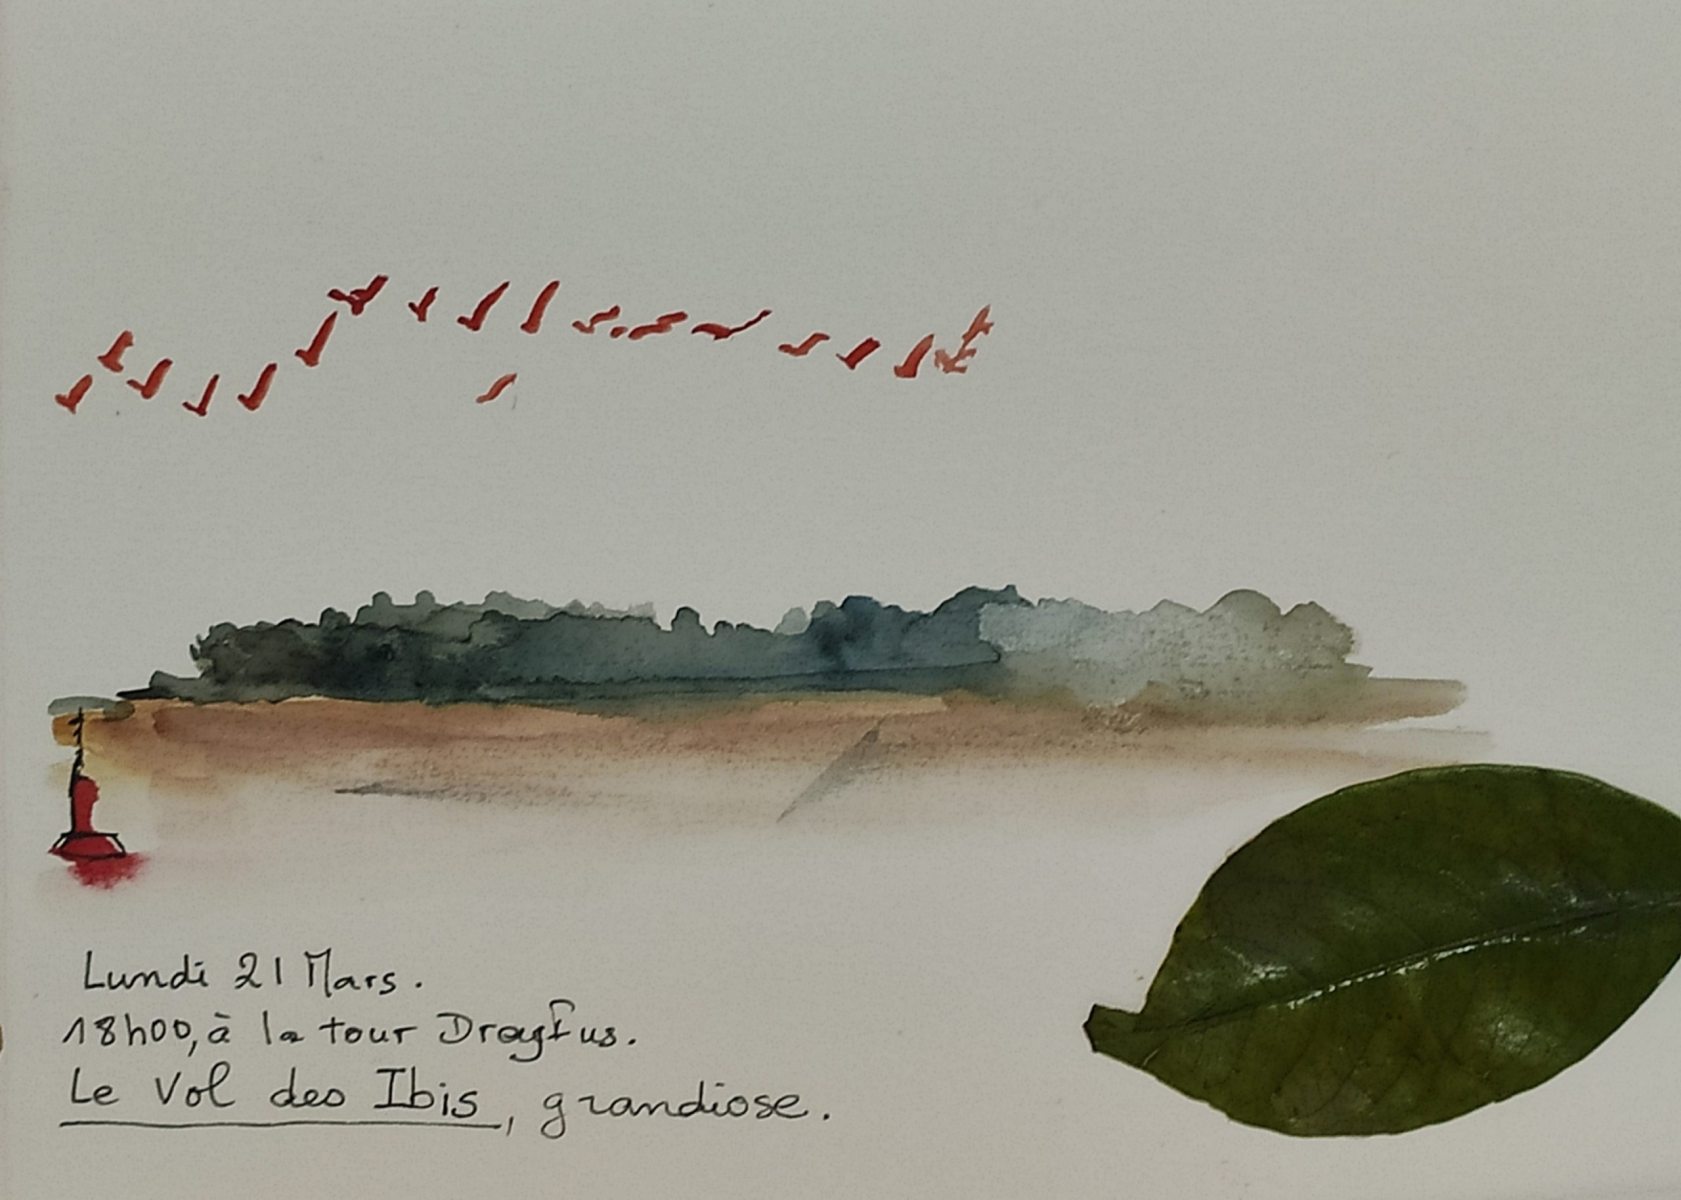 Lundi 21 Mars.
18h00, à la tour Dreyfus.
Le Vol des Ibis, grandiose.